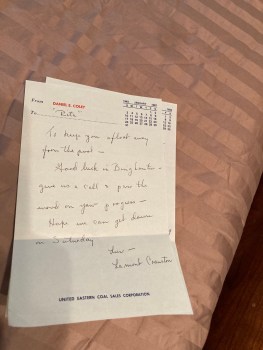 From DANIEL E. COLEY
To "Rita"
To keep you afloat away
from the pool —
Good luck in Binghamton —
give us a call & pass the
word on your progress —
Hope we can get down
on Saturday
Love —
Lamont Cranston
UNITED EASTERN COAL SALES CORPORATION